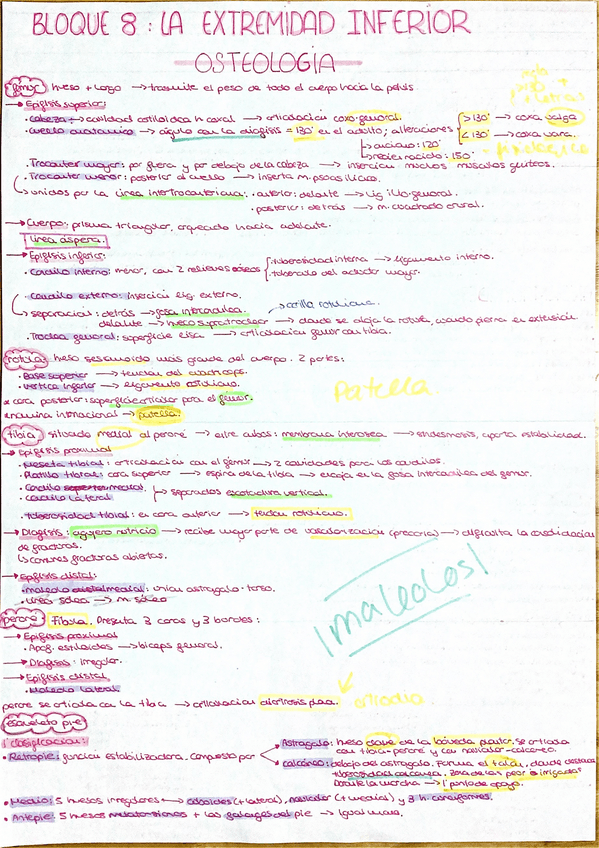 BLOQUE 8: LA EXTREMIDAD INFERIOR
OSTEOLOGIA
fémur hueso + largo → trasmite el peso de todo el cuerpo hacia la pelvis
→ Epífisis superior:
· cabeza → cavidad cotiloidea h coxal → articulación coxo-femoral.
· cuello anatómico → ángulo con la diáfisis = 130° en el adulto; alteraciones >130° → coxa valga
<130° → coxa vara.
→ anciano: 120°
→ recien nacido: 150°
· Trocanter mayor: por fuera y por debajo de la cabeza → inserción muchos musculos glúteos.
· Trocanter menor: posterior al cuello → inserta m. psoas ilíaco.
→ unidos por la línea intertrocanteriana: · anterior: delante → lig ilio-femoral.
· posterior: detrás → m. cuadrado crural.
→ Cuerpo: prisma triangular, arqueado hacia adelante.
línea áspera.
→ Epífisis inferior:
· Cóndilo interno: menor, con 2 relieves óseos · tuberosidad interna → ligamento interno.
· tubérculo del aductor mayor.
· Cóndilo externo: inserción lig. externo.
→ separación: detrás → fosa intercondílea.
→ carilla rotuliana.
delante → hueso supratroclear → donde se aloja la rotula, cuando pierna en extensión
· Troclea femoral: superficie lisa → articulación femur con tibia.
rotula: hueso sesamoido más grande del cuerpo. 2 partes:
· Base superior → tendon del cuadriceps.
· vertice inferior → ligamento rotuliano.
* cara posterior: superficie articular para el femur.
Patella
→ patella.
tibia situado medial al peroné → entre ambos: membrana interosea → sindesmosis, aporta estabilidad.
→ Epífisis proximal
· Meseta tibial: articulación con el femur → 2 cavidades para los condilos.
· Platillo tibial: cara superior → espina de la tibia → encaja en la fosa intercondilea del femur.
· Condilo medial.
· Condilo lateral
→ separados escotadura vertical.
· tuberosidad tibial: en cara anterior → tendon rotuliano.
→ Diáfisis: agujero nutricio → recibe mayor parte de vascularización (precaria) → dificulta la consolidación
de fracturas.
↳ comunes fracturas abiertas.
→ epífisis distal:
· maleolo medial: union astragalo-tarso.
· línea sólea → m. sóleo
¡maleolos!
peroné Fíbula. Presenta 3 caras y 3 bordes:
→ Epífisis proximal
· Apof. estiloides → biceps femoral.
→ Diáfisis: irregular.
→ Epífisis distal
· Maleolo lateral.
peroné se articula con la tibia → articulación diartrosis plana.
artrodia
esqueleto pie
clasificación:
· Retropie: función estabilizadora. Compuesto por
Astragalo: hueso clave de la bóveda plantar. Se articula
con tibia-peroné y con navicular-calcáneo.
calcáneo: debajo del astragalo. Forma el talón, donde destaca
tuberosidad calcanea. Zona de las peor irrigadas
Durante la marcha → 1º punto de apoyo.
· Medio: 5 huesos irregulares → cuboides (+ lateral), navicular (+ medial) y 3 h. cuneiformes.
· Antepie: 5 huesos metatarsianos + las falanges del pie → igual mano.